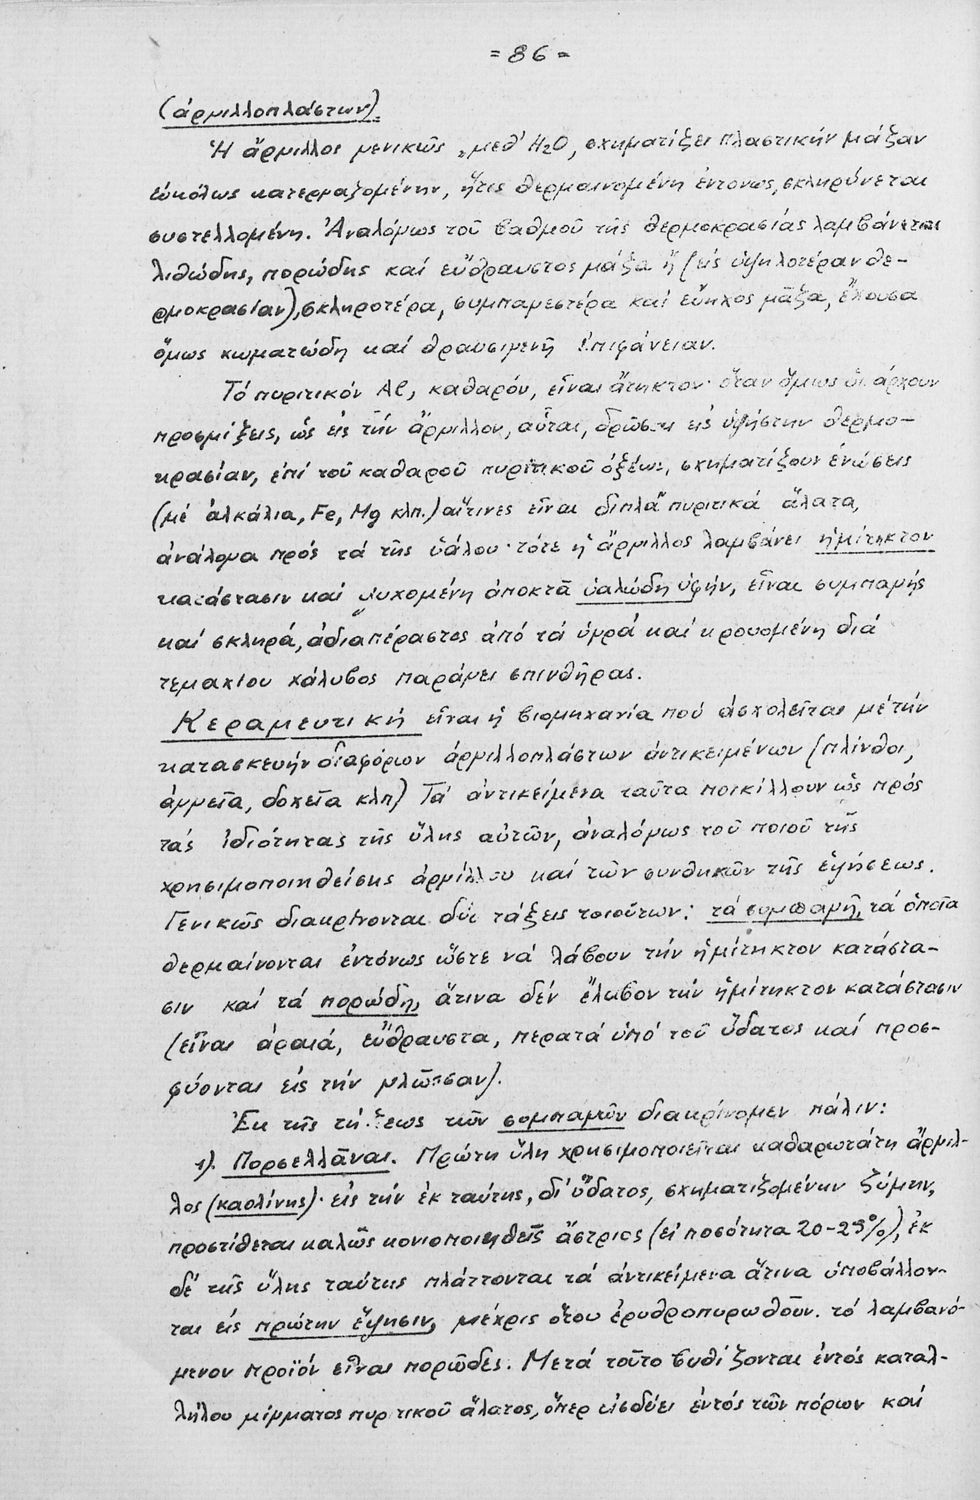 = 86 =
(ἀργιλλοπλάστων).
Ἡ ἄργιλλος γενικῶς, μεθ' H2O, σχηματίζει πλαστικήν μᾶζαν
εὐκόλως κατεργαζομένην, ἥτις θερμαινομένη ἐντόνως, σκληρύνεται
συστελλομένη. Ἀναλόγως τοῦ βαθμοῦ τῆς θερμοκρασίας λαμβάνεται
λιθώδης, πορώδης καί εὔθραυστος μᾶζα ἤ (εἰς ὑψηλοτέραν θε-
ρμοκρασίαν), σκληροτέρα, συμπαγεστέρα καί εὔηχος μᾶζα, ἔχουσα
ὅμως χωματώδη καί θραυσιγενῆ ἐπιφάνειαν.
Τό πυριτικόν Al, καθαρόν, εἶναι ἄτηκτον· ὅταν ὅμως ὑπάρχουν
προσμίξεις, ὡς εἰς τήν ἄργιλλον, αὗται, δρῶσαι εἰς ὑψίστην θερμο-
κρασίαν, ἐπί τοῦ καθαροῦ πυριτικοῦ ὀξέως, σχηματίζουν ἑνώσεις
(μέ ἀλκάλια, Fe, Mg κλπ.) αἵτινες εἶναι διπλᾶ πυριτικά ἅλατα,
ἀνάλογα πρός τά τῆς ὑάλου· τότε ἡ ἄργιλλος λαμβάνει ἡμίτηκτον
κατάστασιν καί ψυχομένη ἀποκτᾶ ὑαλώδη ὑφήν, εἶναι συμπαγής
καί σκληρά, ἀδιαπέραστος ἀπό τά ὑγρά καί κρουομένη διά
τεμαχίου χάλυβος παράγει σπινθῆρας.
Κεραμευτική εἶναι ἡ βιομηχανία πού ἀσχολεῖται μέ τήν
κατασκευήν διαφόρων ἀργιλλοπλάστων ἀντικειμένων (πλίνθοι,
ἀγγεῖα, δοχεῖα κλπ) Τά ἀντικείμενα ταῦτα ποικίλλουν ὡς πρός
τάς ἰδιότητας τῆς ὕλης αὐτῶν, ἀναλόγως τοῦ ποιοῦ τῆς
χρησιμοποιηθείσης ἀργίλλου καί τῶν συνθηκῶν τῆς ἑψήσεως.
Γενικῶς διακρίνονται δύο τάξεις τοιούτων: τά συμπαγῆ, τά ὁποῖα
θερμαίνονται ἐντόνως ὥστε νά λάβουν τήν ἡμίτηκτον κατάστα-
σιν καί τά πορώδη, ἅτινα δέν ἔλαβον τήν ἡμίτηκτον κατάστασιν
(εἶναι ἀραιά, εὔθραυστα, περατά ὑπό τοῦ ὕδατος καί προσ-
φύονται εἰς τήν γλῶσσαν).
Ἐκ τῆς τάξεως τῶν συμπαγῶν διακρίνομεν πάλιν:
1). Πορσελλᾶναι. Πρώτη ὕλη χρησιμοποιεῖται καθαρωτάτη ἄργιλ-
λος (καολίνης)· εἰς τήν ἐκ ταύτης, δι' ὕδατος, σχηματιζομένην ζύμην,
προστίθεται καλῶς κονιοποιηθείς ἄστριος (εἰ ποσότητα 20-25%), ἐκ
δέ τῆς ὕλης ταύτης πλάττονται τά ἀντικείμενα ἅτινα ὑποβάλλον-
ται εἰς πρώτην ἕψησιν, μέχρις ὅτου ἐρυθροπυρωθοῦν. τό λαμβανό-
μενον προϊόν εἶναι πορῶδες. Μετά τοῦτο βυθίζονται ἐντός καταλ-
λήλου μίγματος πυριτικοῦ ἅλατος, ὅπερ εἰσδύει ἐντός τῶν πόρων καί